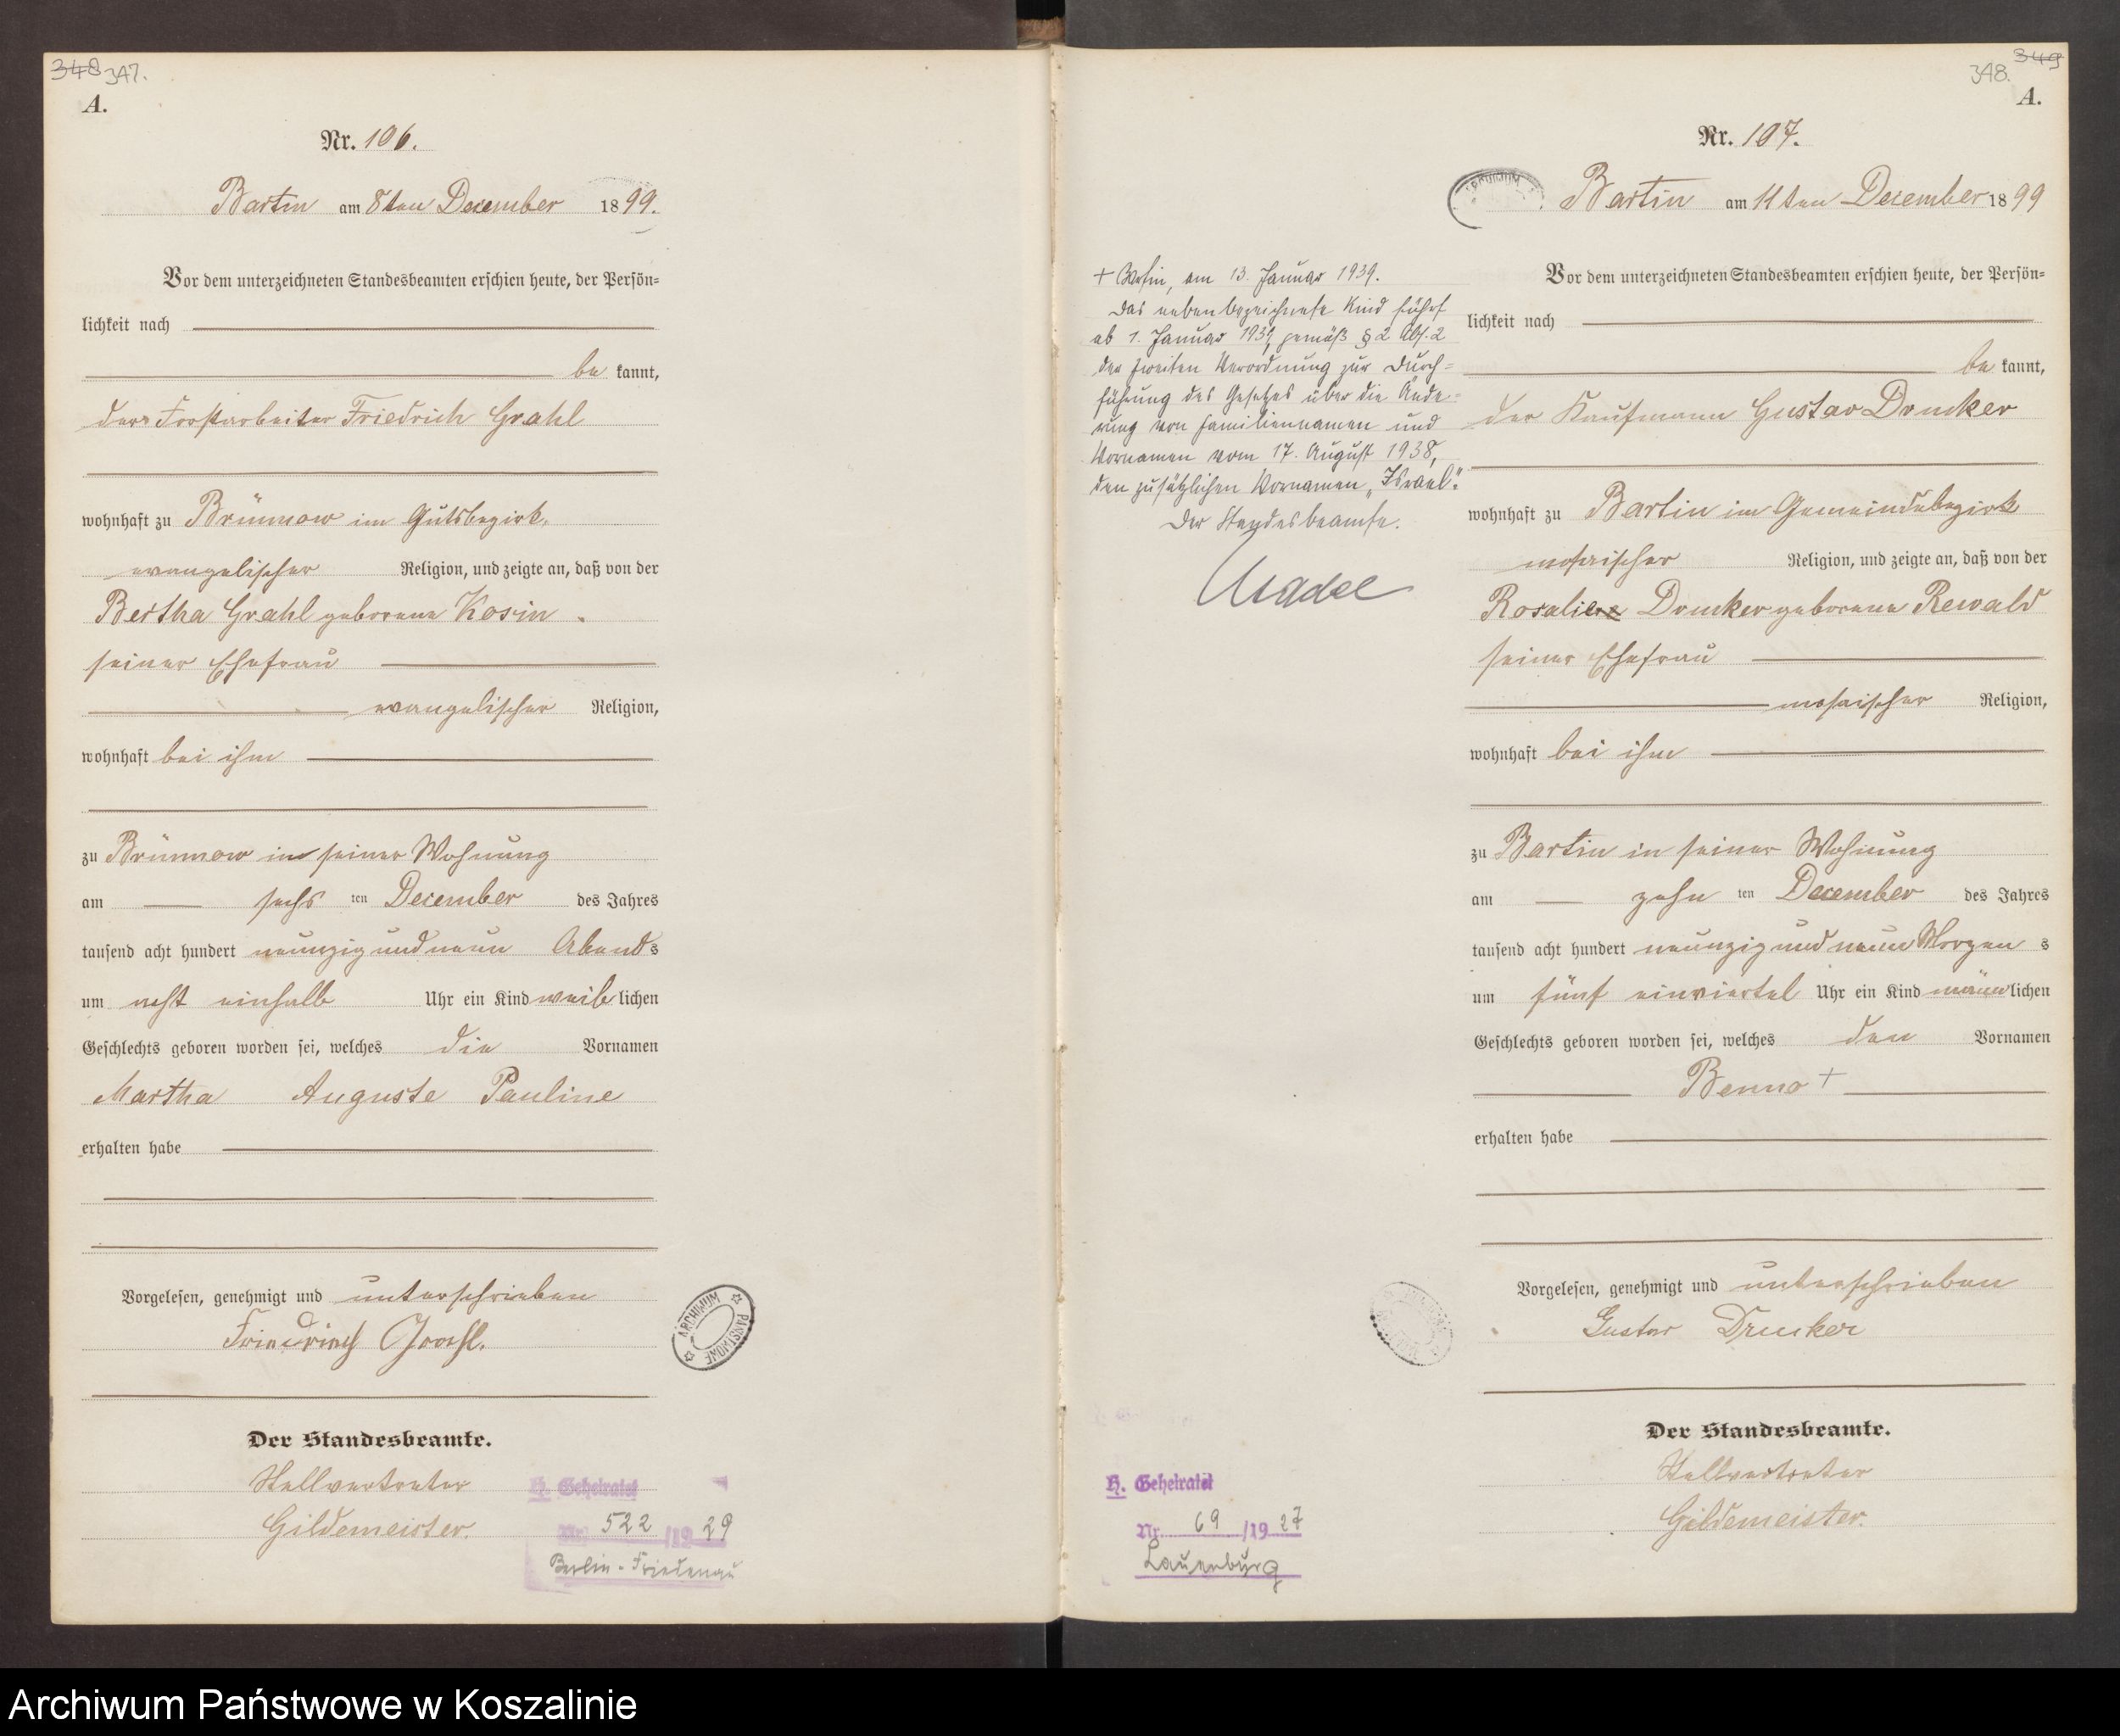 348 347.
A.
Nr. 106.
Bartin am 8ten December 1899.
Vor dem unterzeichneten Standesbeamten erschien heute, der Persön=
lichkeit nach
be kannt,
der Forstarbeiter Friedrich Grahl
wohnhaft zu Brünnow im Gutsbezirk,
evangelischer Religion, und zeigte an, daß von der
Bertha Grahl geborene Kosin
seiner Ehefrau
evangelischer Religion,
wohnhaft bei ihm
zu Brünnow in seiner Wohnung
am sechs ten December des Jahres
tausend acht hundert neunzig und neun Abends
um acht einhalb Uhr ein Kind weiblichen
Geschlechts geboren worden sei, welches die Vornamen
Martha Auguste Pauline
erhalten habe
Vorgelesen, genehmigt und unterschrieben
Friedrich Grahl.
ARCHIWUM PAŃSTWOWE
Der Standesbeamte.
Stellvertreter
Gildemeister.
H. Geheiratet
Nr. 522 /1929
Berlin-Friedenau
349
348.
A.
Nr. 107.
ARCHIWUM
Bartin am 11ten December 1899
+ am 13. Januar 1939.
Das nebenbezeichnete Kind führt
ab 1. Januar 1939, gemäß § 2 Abs. 2
der zweiten Verordnung zur Durch=
führung des Gesetzes über die Ände=
rung von Familiennamen und
Vornamen vom 17. August 1938,
den zusätzlichen Vornamen „Israel".
Der Standesbeamte.
Vor dem unterzeichneten Standesbeamten erschien heute, der Persön=
lichkeit nach
be kannt,
der Kaufmann Gustav Drucker
wohnhaft zu Bartin im Gemeindebezirk
mosaischer Religion, und zeigte an, daß von der
Rosalie Drucker geborene Rewald
seiner Ehefrau
mosaischer Religion,
wohnhaft bei ihm
zu Bartin in seiner Wohnung
am zehn ten December des Jahres
tausend acht hundert neunzig und neun Morgens
um fünf einviertel Uhr ein Kind männlichen
Geschlechts geboren worden sei, welches den Vornamen
Benno +
erhalten habe
Vorgelesen, genehmigt und unterschrieben
Gustav Drucker
Der Standesbeamte.
Stellvertreter
Gildemeister.
H. Geheiratet
Nr. 69 /1927
Lauenburg
Archiwum Państwowe w Koszalinie